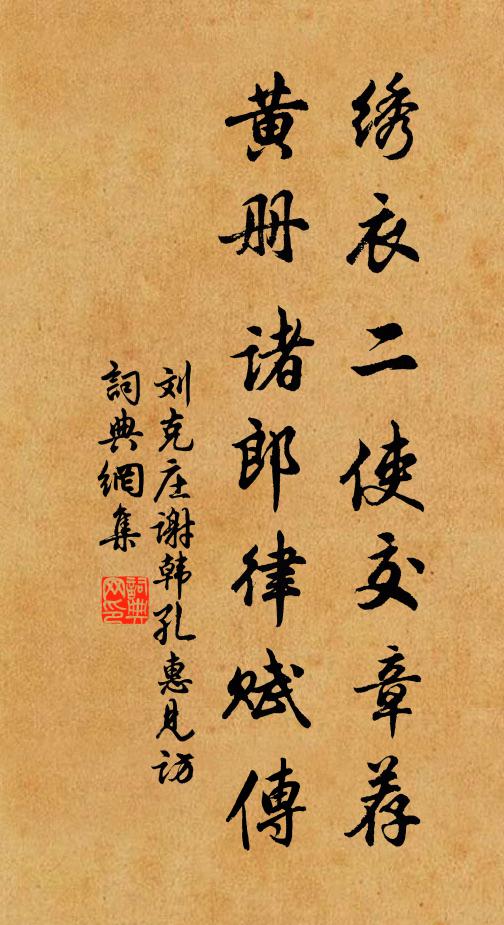 绣衣二使交章荐
黄册诸郎律赋傳
刘克庄谢韩孔惠见访
詞典網集
詞典网印